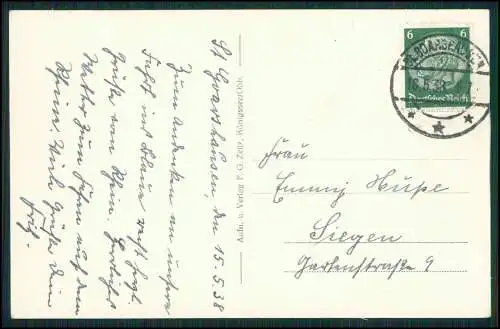 St Goarshausen, den 15.5.38
Zum Andenken an unsere
Fahrt ins Blaue recht herzl.
Grüße vom Rhein. Herrlichst
Wetter zum Fahren auf dem
Rhein. Viele Grüße Dein
Fritz.
Aufn. u. Verlag P. G. Zeitz, Königssee/Obb.
6 6
Deutsches Reich
ST. GOARSHAUSEN
15.5.38
Frau
Emmy Hüpe
Siegen
Gartenstraße 9